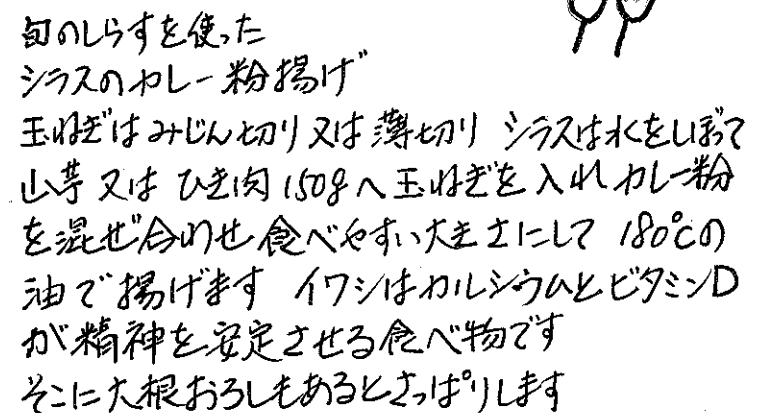 旬のしらすを使った
シラスのカレー粉揚げ
玉ねぎはみじん切り又は薄切り シラスは水をしぼって
山芋又は ひき肉150gへ玉ねぎを入れカレー粉
を混ぜ合わせ食べやすい大きさにして 180℃の
油で揚げます イワシはカルシウムとビタミンD
が精神を安定させる食べ物です
そこに大根おろしもあるとさっぱりします